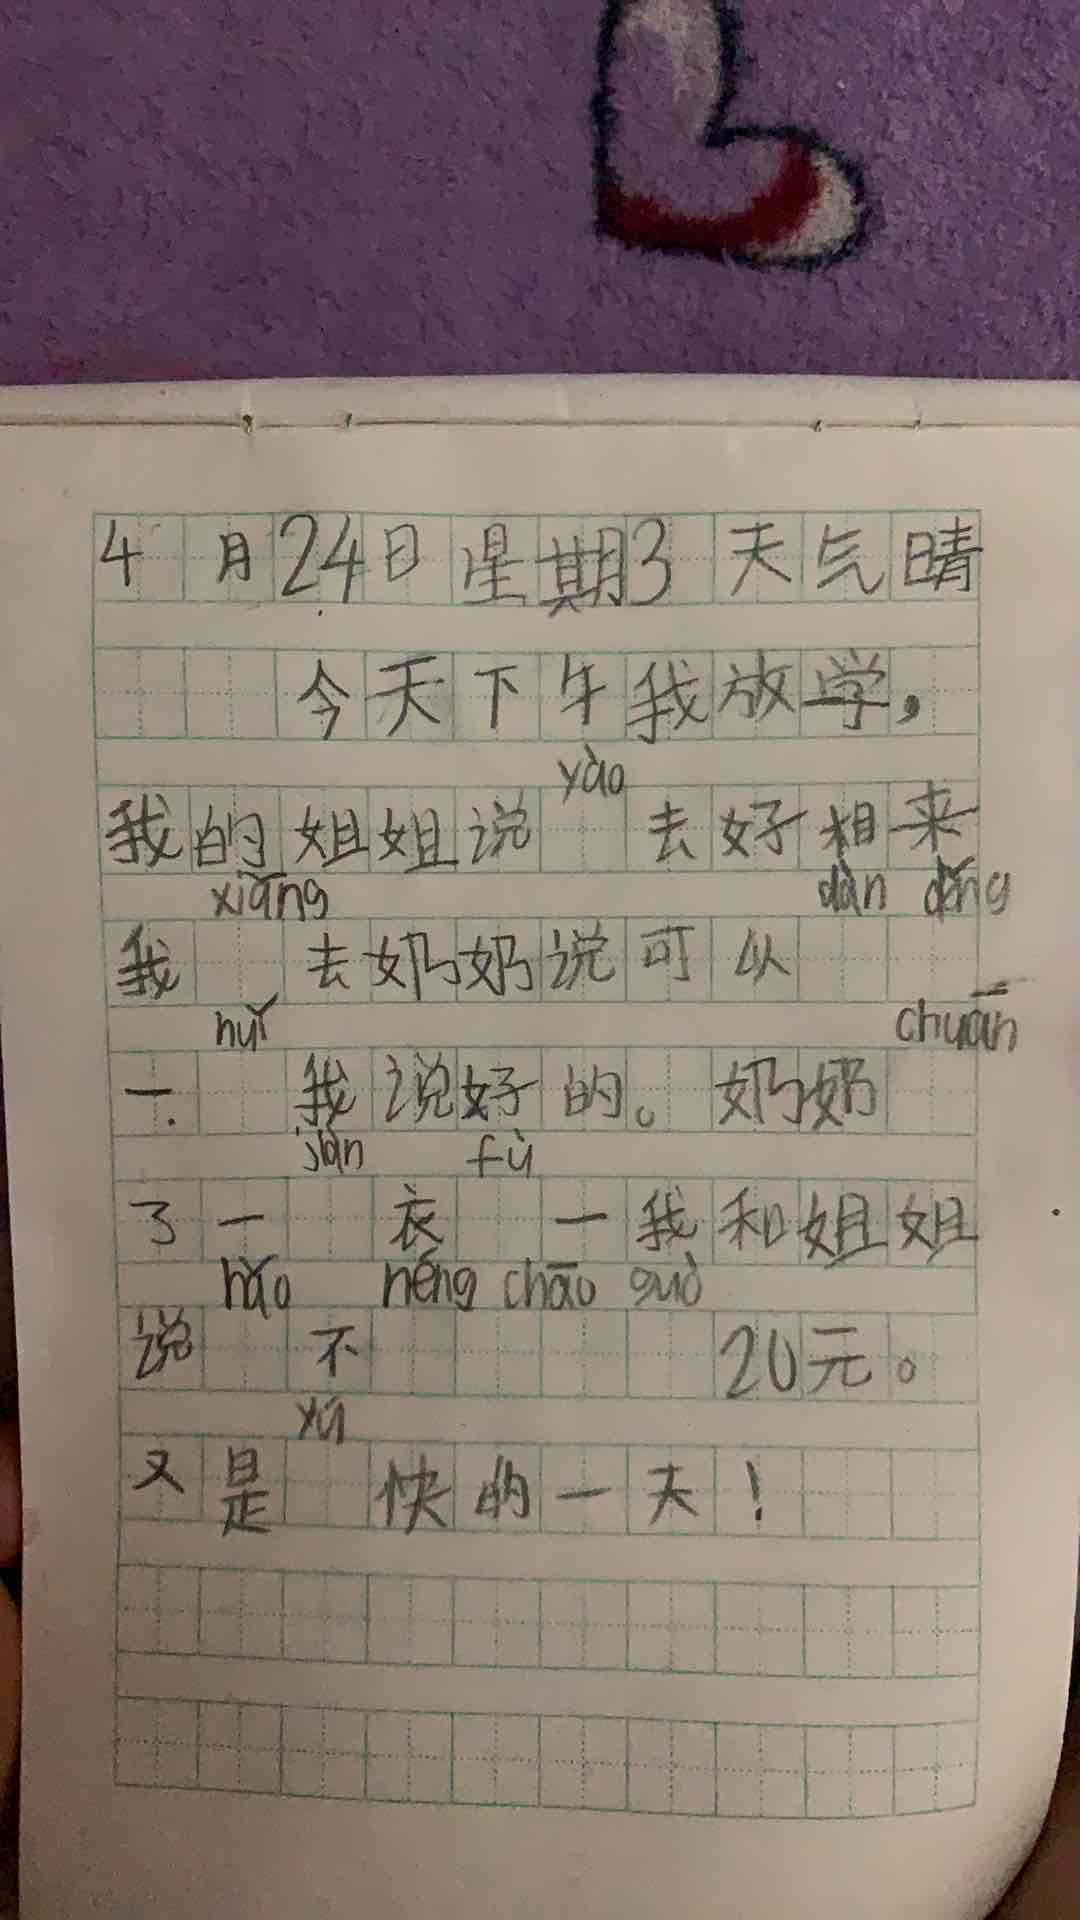 4月24日星期3天气晴
今天下午我放学，
yào
我的姐姐说 去好相来
xiǎng dàn děng
我 去奶奶说可以
huǐ chuān
一. 我说好的。奶奶
jiàn fù
了一 衣 一我和姐姐
hǎo néng chāo guò
说 不 20元。
yú
又是 快的一天！